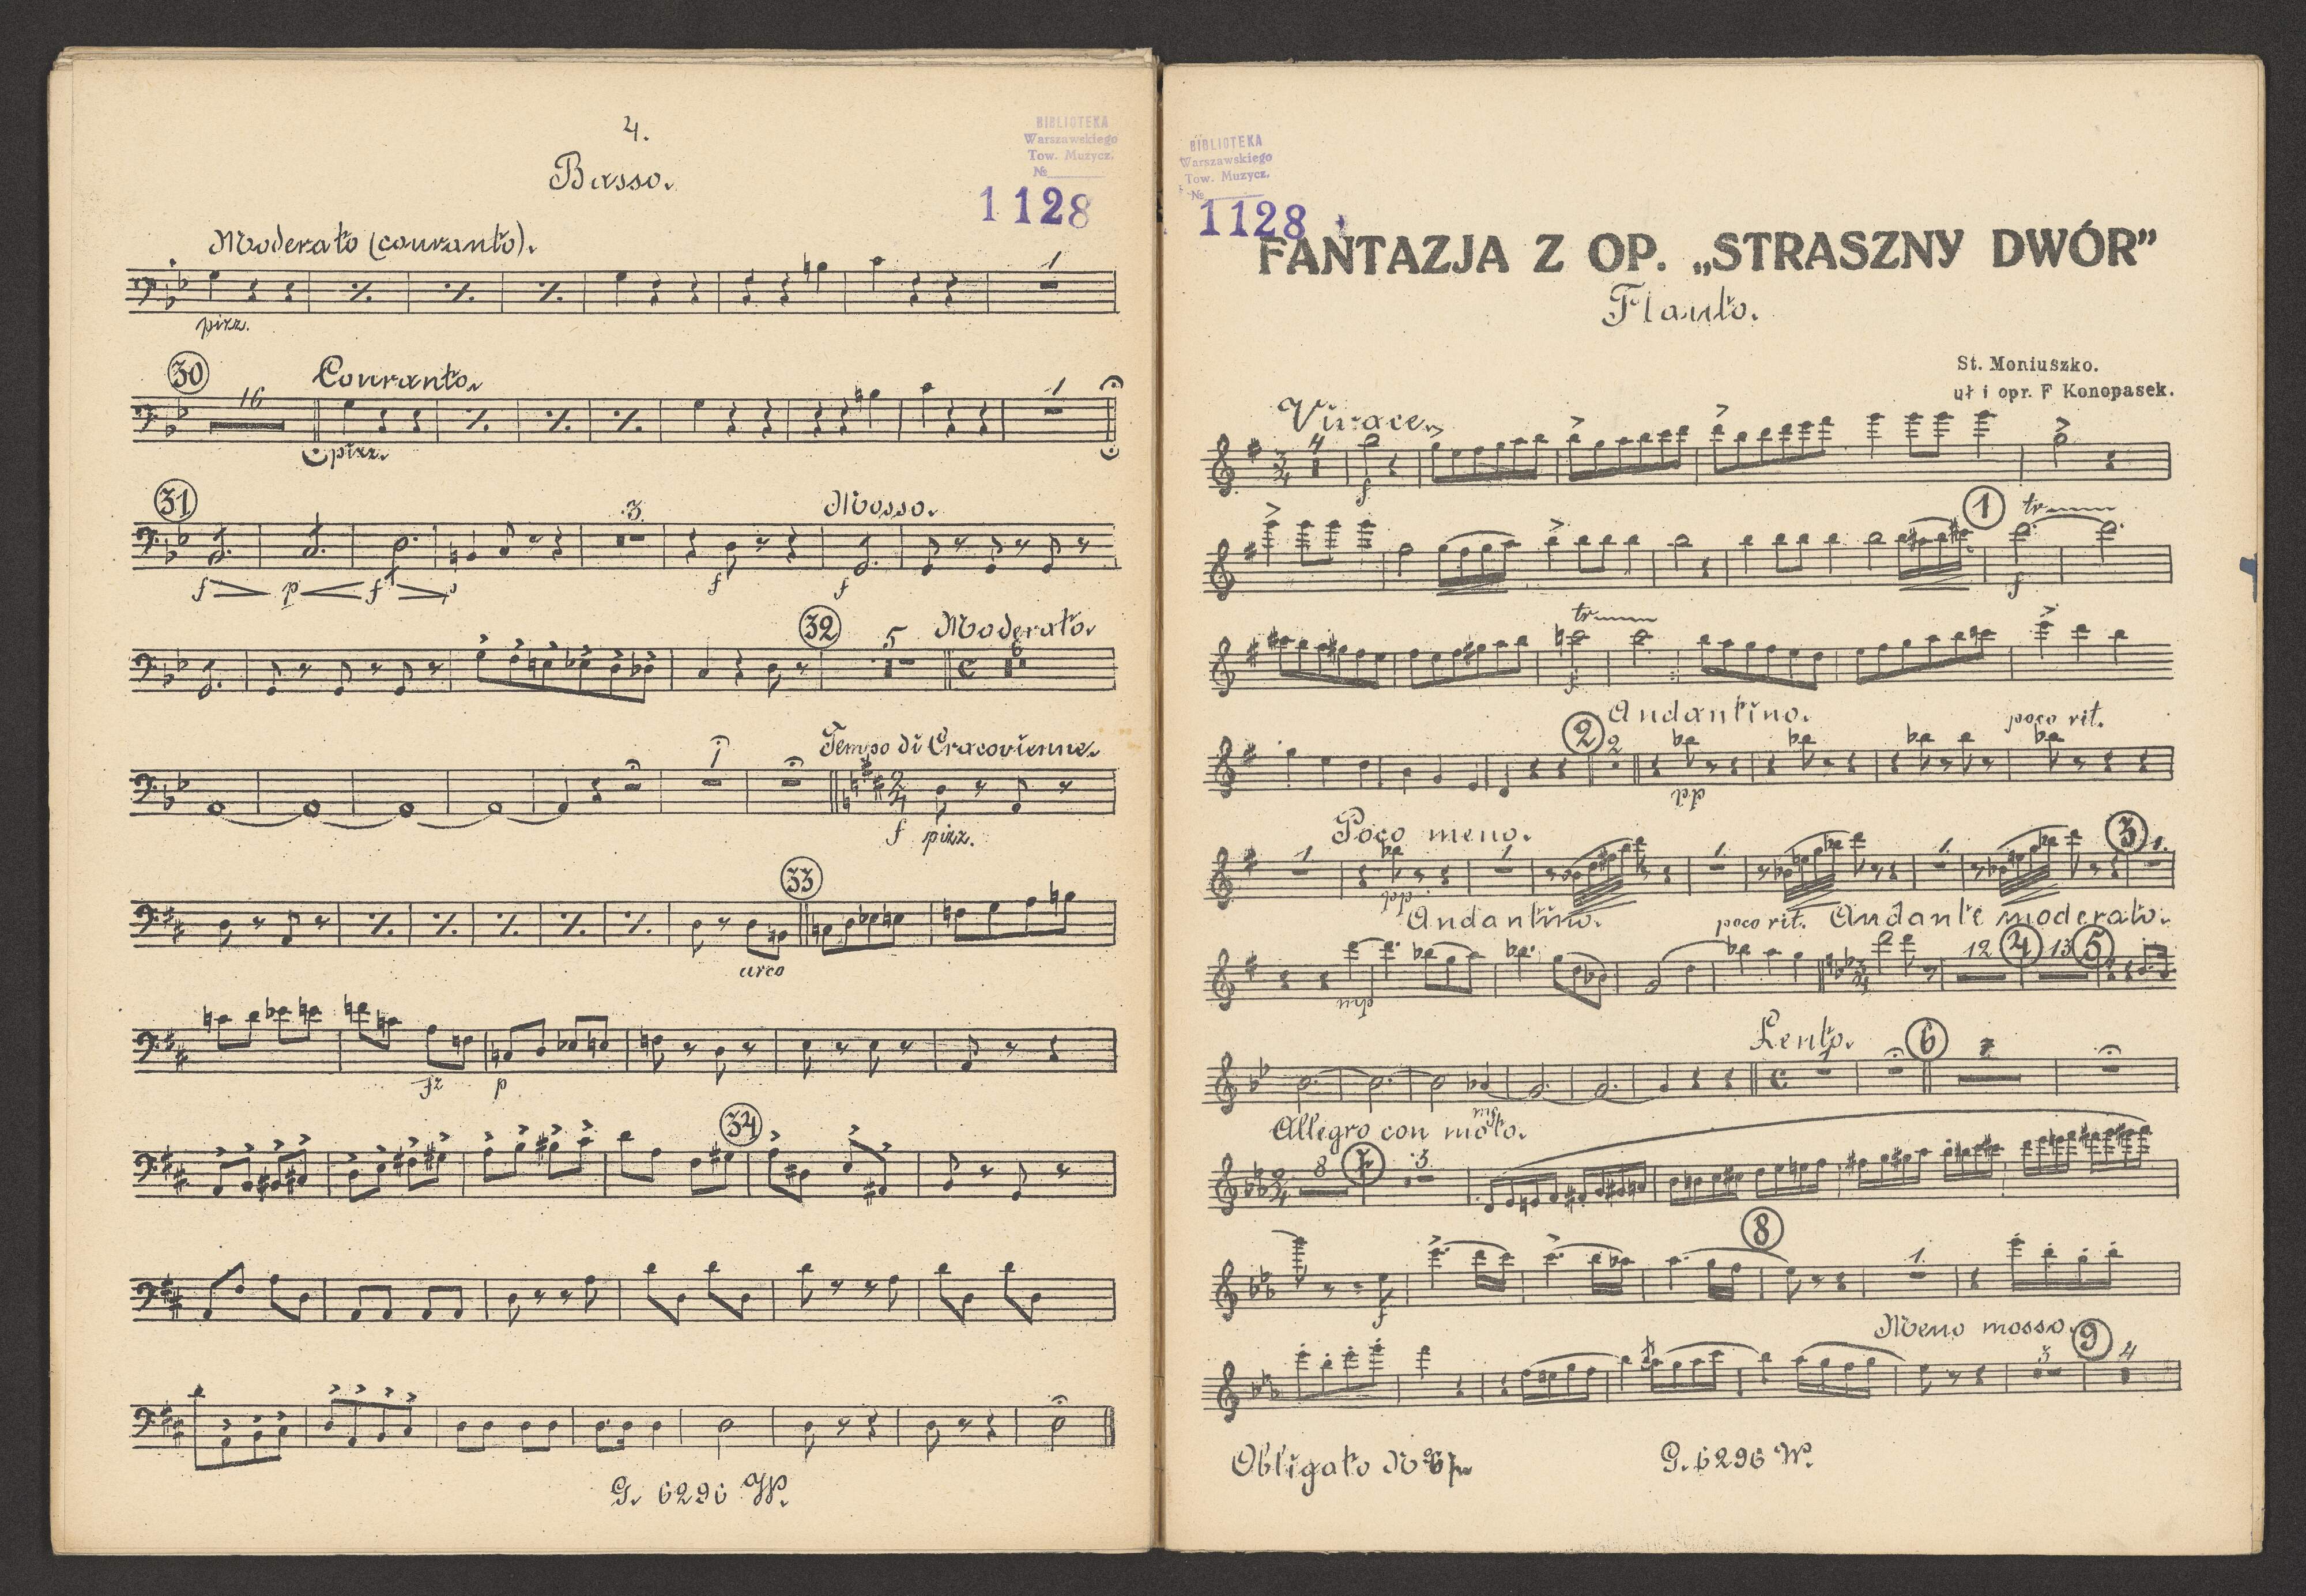 4.
Basso.
BIBLIOTEKA
Warszawskiego
Tow. Muzycz.
№
1128
Moderato (couranto).
1
pizz.
30
16
Couranto.
1
pizz.
31
3
Mosso.
f p f p f f
32
5
Moderato.
6
1
Tempo di Cracovienne.
f pizz.
33
arco
fz p
34
G. 6296 W.
BIBLIOTEKA
Warszawskiego
Tow. Muzycz.
№
1128
FANTAZJA Z OP. „STRASZNY DWÓR”
Flauto.
St. Moniuszko.
uł i opr. F Konopasek.
Vivace.
4
f
1
tr
f
tr
f
2
Andantino.
2
poco rit.
Poco meno.
1 1 1 1 1.
3
Andantino.
poco rit. Andante moderato.
12 4 13 5
Lento.
6
Allegro con moto.
8 7 3
8
1.
f
Meno mosso.
9
3 4
Obligato
G. 6296 W.